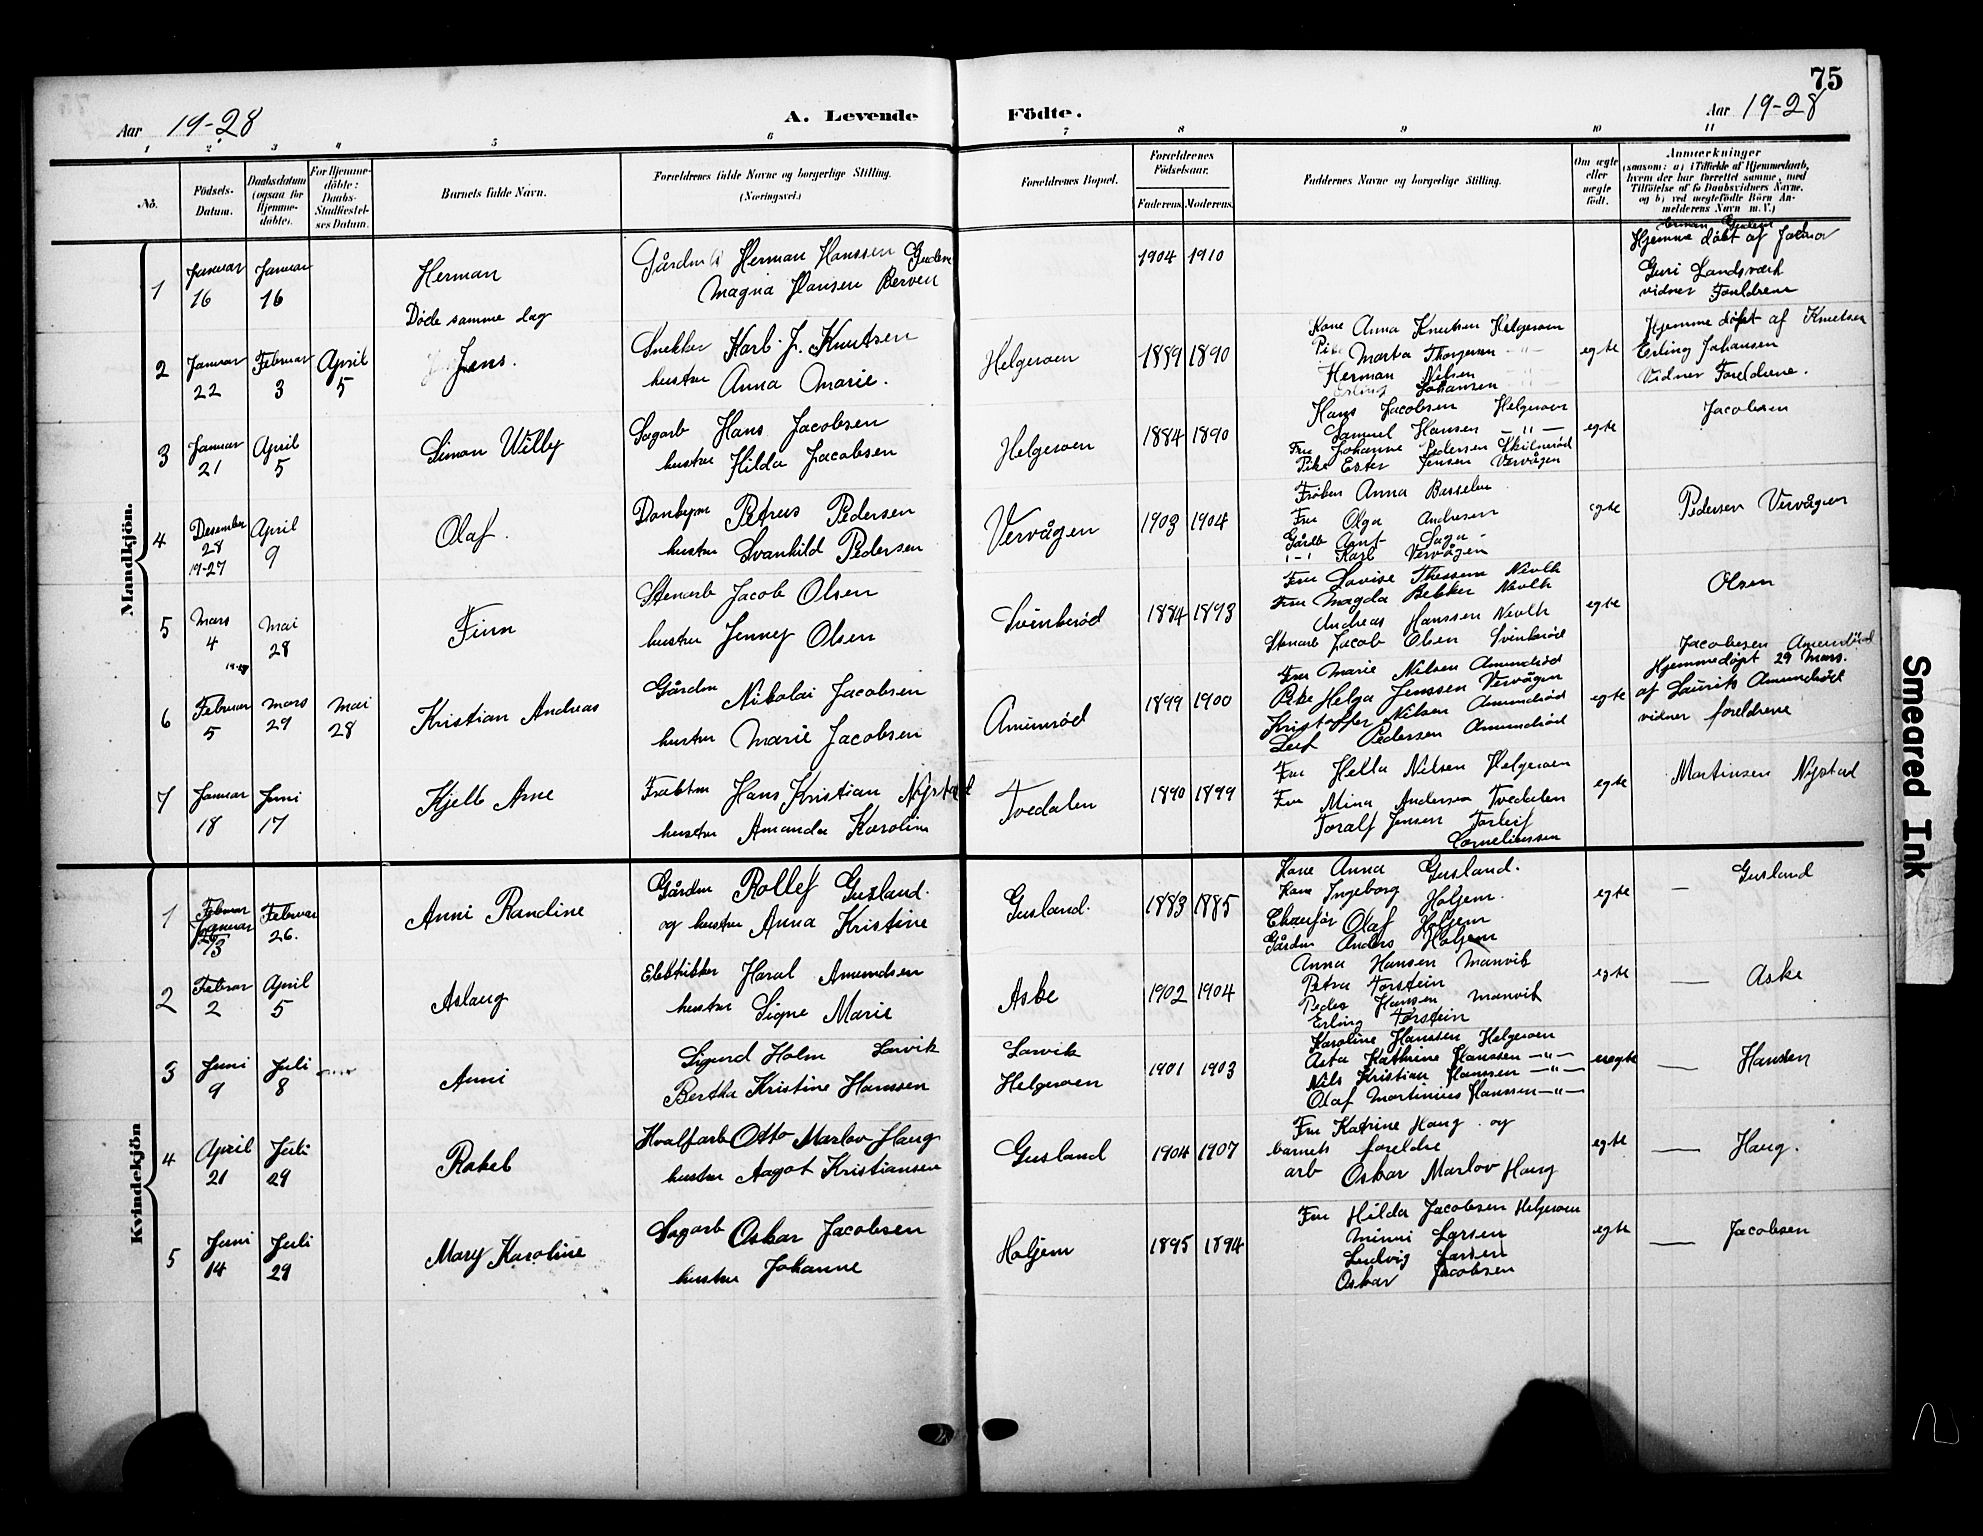 75
Aar 19-28
A. Levende Födte.
Aar 19-28
1 2 3 4 5 6 7 8 9 10 11
No.
Födsels-Datum.
Daabsdatum (ogsaa for Hjemme-døbte).
For Hjemme-døbte: Daabs-Stadfæstel-ses Datum.
Barnets fulde Navn.
Forældrenes fulde Navne og borgerlige Stilling. (Næringsvei.)
Forældrenes Bopæl.
Forældrenes Fødselsaar.
Faderens. Moderens.
Faddernes Navne og borgerlige Stilling.
Om ægte eller uægte født.
Anmærkninger
(saasom: a) i Tilfælde af Hjemmedaab, hvem der har forrettet samme, med Tilføielse af to Daabsvidners Navne, og b) ved uægtefødte Börn An-melderens Navn m. V.)
Mandkjön.
1 Januar 16 Januar 16 Herman
Døde samme dag
Gårdm Herman Hanssen
Magna Hansen Berven
1904 1910
Hjemme døbt af Jormor
Guri Landsværk
vidner Foreldrene
2 Januar 22 Februar 3 April 5 Jens.
Snekker Karl. J. Knutsen
hustru Anna Marie.
Helgeroen 1889 1890
Kone Anna Knutsen Helgeroen
Pike Marta Thorgersen -"-
Herman Nelsen -"-
Erling Johansen -"-
egte
Hjemme døpt af Knutsen
Erling Johansen
Vidner Foreldrene.
3 Januar 21 April 5 Simon Willy
Sagarb Hans Jacobsen
hustru Hilda Jacobsen
Helgeroen 1884 1890
Hans Jacobsen Helgeroen
Samuel Hansen -"-
Fru Johanne Pedersen Skilnerød
Pike Ester Jensen Vervågen
egte
Jacobsen
4 Desember 28 19-27 April 9 Olaf.
Petrus Pedersen
hustru Svanhild Pedersen
Vervågen 1903 1904
Frøken Anna Besselen
Fru Olga Andresen
Gårdb Arnt Saga -
-"- Karl Vervågen
egte
Pedersen Vervågen
5 Mars 4 Mai 28 Finn
Stenarb Jacob Olsen
hustru Jenney Olsen
Svinbrød 1884 1893
Fru Lovise Thessem Nevlh
Fru Magda Bekker Nevlh
Andreas Hanssen Nevlh
Stenarb Jacob Olsen Svinbrød
egte
Olsen
6 19-28 Februar 5 Mars 29 Mai 28 Kristian Andreas
Gårdm Nikolai Jacobsen
hustru Marie Jacobsen
Amunrød 1899 1900
Fru Marie Nilsen Amundrød
Pike Helga Jenssen Vervågen
Kristoffer Nilsen Amundrød
Leif Pedersen Amundrød
egte
Jacobsen Amundrød
Hjemmedøpt 29 Mars.
af Laurits Amundrød
vidner foreldrene
7 Januar 18 Juni 17 Kjell Arne
Hans Kristian Nystad
hustru Amanda Karoline
Tvedalen 1890 1899
Fru Hella Nilsen Helgeroen
Fru Mina Andersen Tvedalen
Toralf Jensen Torleif
Corneliussen
egte
Martinsen Nystad
Kvindekjön
1 Februar Januar 13 Februar 26. Anni Randine
Gårdm Rollef Gusland.
og hustru Anna Kristine
Gusland. 1883 1885
Kone Anna Gusland.
Kone Ingeborg Holjem.
Chaufør Olaf Holjem
Gårdm Anders Holjem
egte — Gusland
2 Februar 2 April 5 Aslaug
Elektriker Haral Amundsen
hustru Signe Marie
Aske 1902 1904
Anna Hansen Manvik
Petra Torstein
Peder Hansen Manvik
Erling Torstein
egte — Aske
3 Juni 9 Juli 8 Anni
Sigurd Holm Larvik
Bertha Kristine Hanssen
Larvik
Helgeroen
1901 1903
Karoline Hanssen Helgeroen
Asta Kathrine Hanssen -"-
Nils Kristian Hanssen -"-
Olaf Martinius Hanssen -"-
uegte — Hansen
4 April 21 Juli 29 Rakel
Hvalfarb Otto Marlov Haug
hustru Aagot Kristiansen
Gusland 1904 1907
Fru Katrine Haug. og
barnets foreldre
arb Oskar Marlov Haug
egte — Haug.
5 Juni 14 Juli 29 Mary Karoline
Sagarb Oskar Jacobsen
hustru Johanne
Holjem 1895 1894
Fru Hilda Jacobsen Helgeroen
Minni Larsen
Ludvig Larsen
Oskar Jacobsen
egte — Jacobsen
Smeared Ink